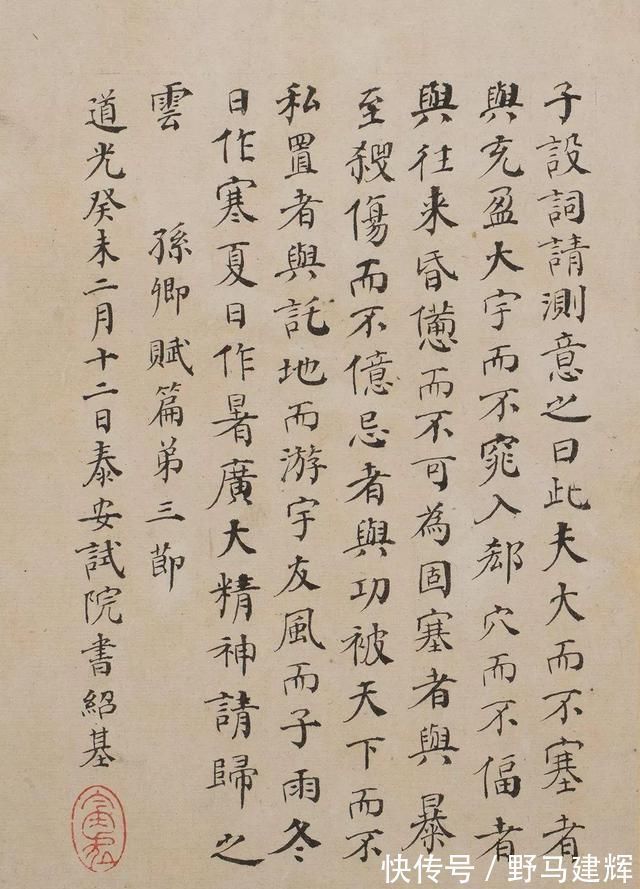 子設詞請測意之曰此夫大而不塞者
與充盈大宇而不窕入郄穴而不偪者
與往来昏憊而不可為固塞者與暴
至殺傷而不億忌者與功被天下而不
私置者與託地而游宇友風而子雨冬
日作寒夏日作暑廣大精神請歸之
雲 孫卿賦篇弟三節
道光癸未二月十二日泰安試院書紹基
快传号 / 野马建辉